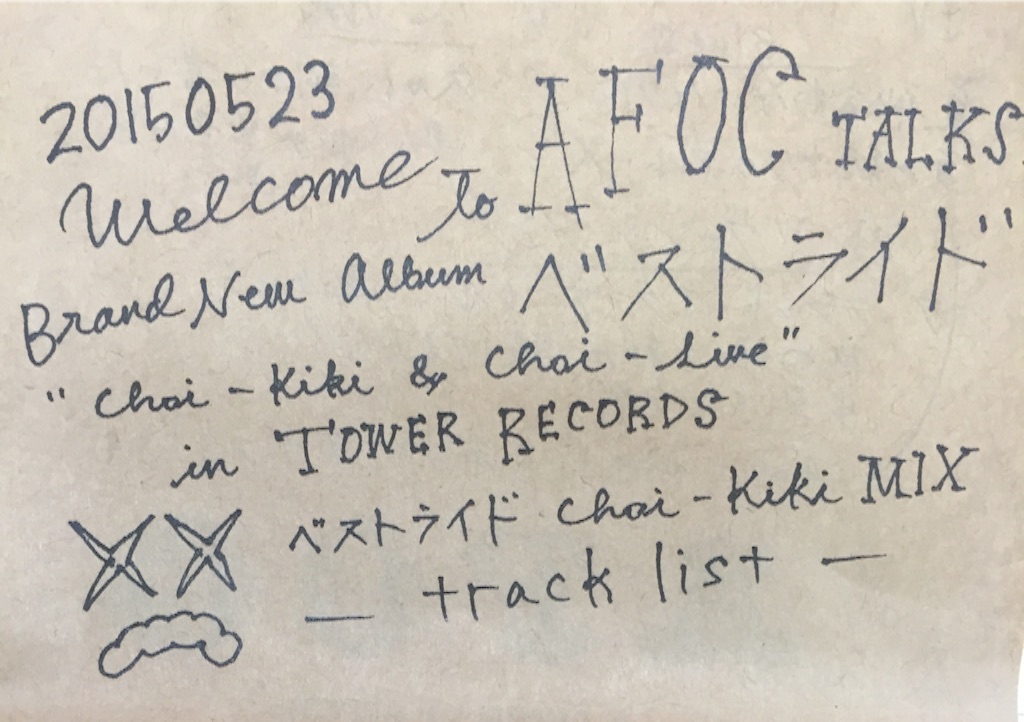 20150523
Welcome to AFOC TALKS.
Brand New Album ベストライド
"Choi-Kiki & Choi-Live"
in TOWER RECORDS
ベストライド Choi-Kiki MIX
— track list —